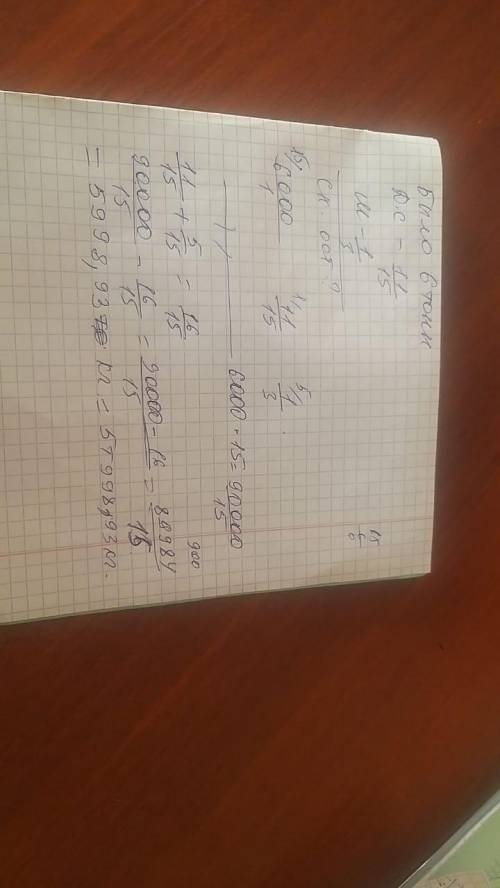 Было 6 тонн
Д.с – 11/15
Ш – 1/3
Ск. ост. ?
15/ 6000/1 1/ 11/15 5/ 1/3
6000 · 15 = 90000/15
11/15 + 5/15 = 16/15
900
90000/15 – 16/15 = 90000 – 16/15 = 89984/15
= 5998,93 кг = 5т 998,93 кг.